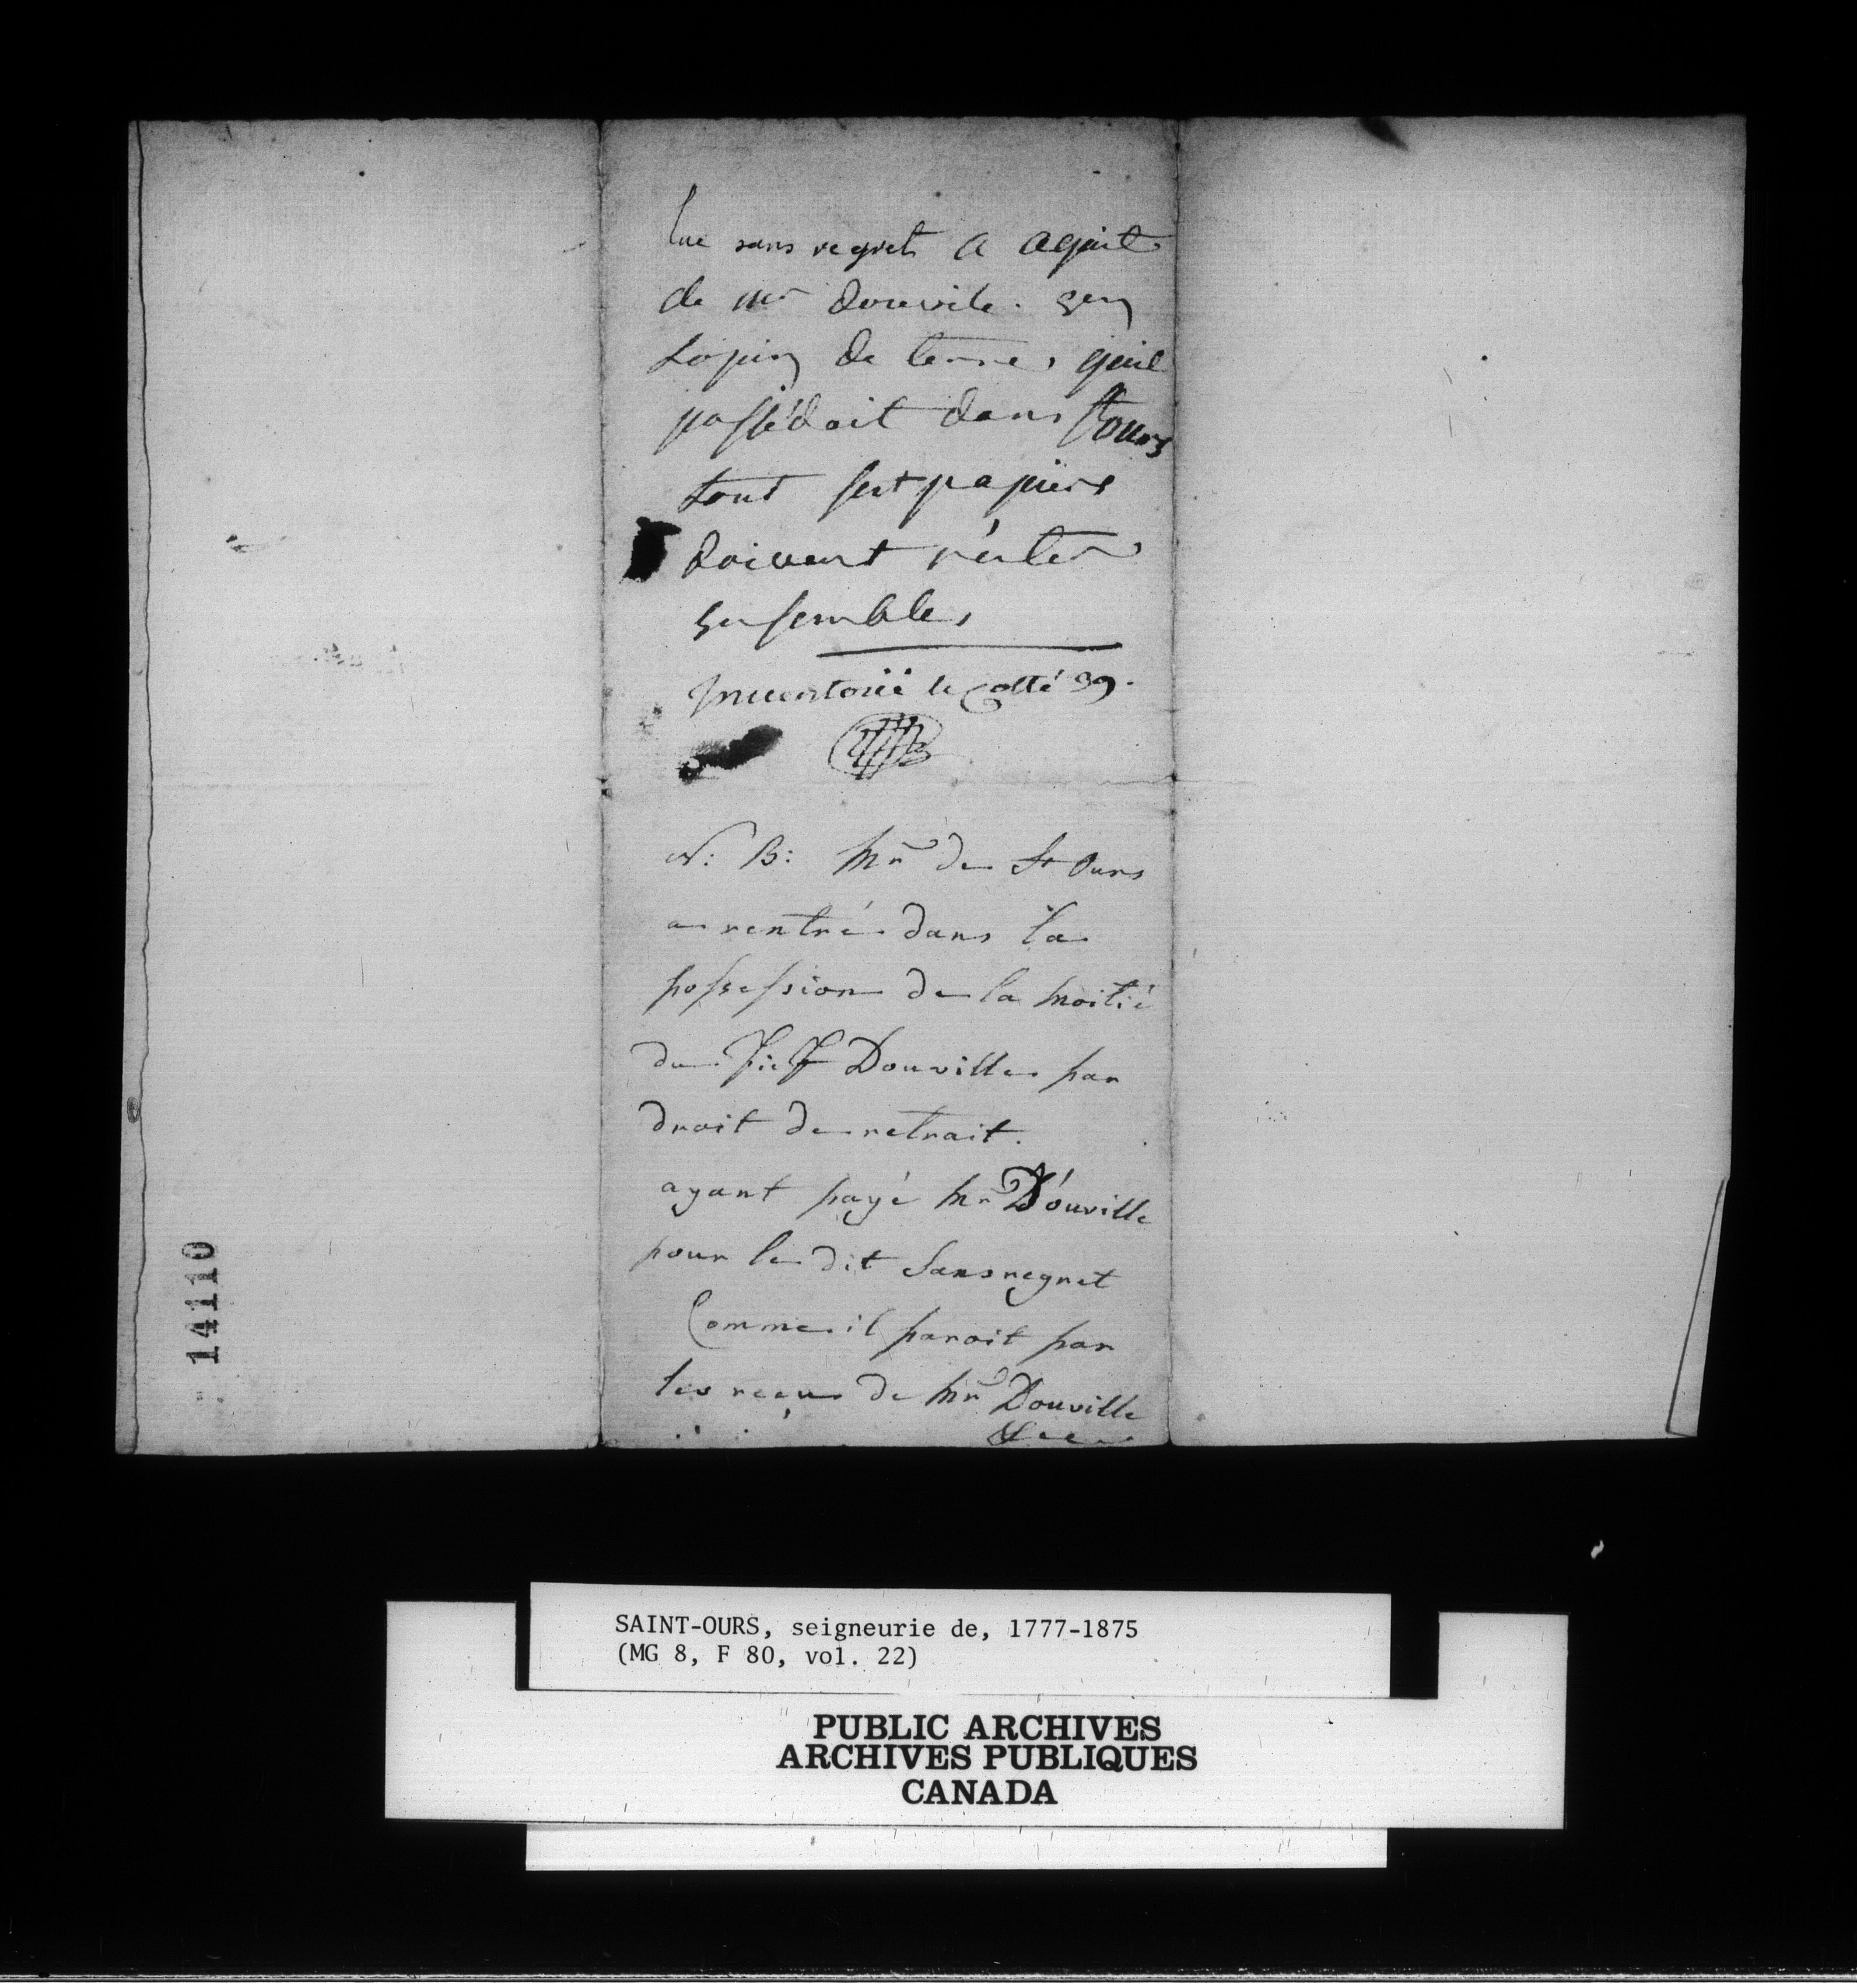 Luc sans regret a aquit
de mr douvile. un
Lopin de terre, quil
possédoit dans St ours
tout set papiers
doivent réster
ensemble,
Inventorié le Cotté 39.
N: B: Mr de St Ours
a rentré dans la
possession de la moitié
du Fief Douville par
droit de retrait.
ayant payé Mr D'ouville
pour le dit Sansregret
Comme il paroit par
les reçus de Mr Douville
14110
SAINT-OURS, seigneurie de, 1777-1875
(MG 8, F 80, vol. 22)
PUBLIC ARCHIVES
ARCHIVES PUBLIQUES
CANADA